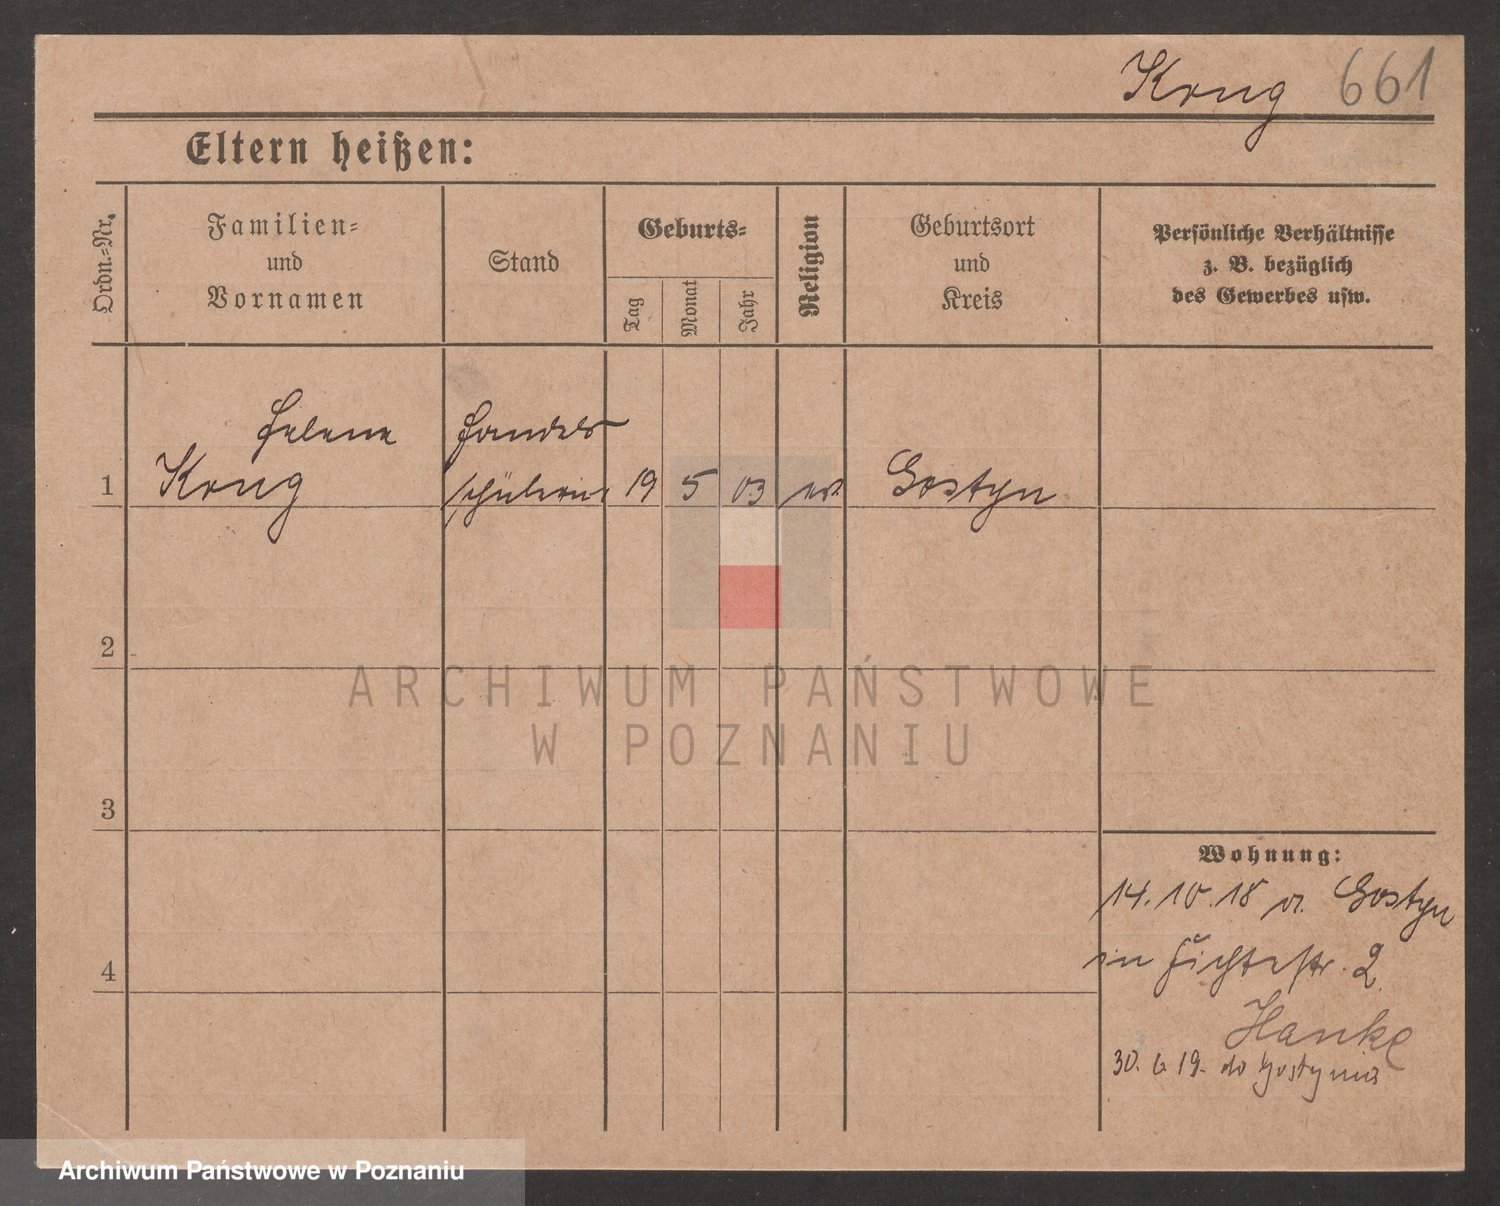 Krug 661
Eltern heißen:
Ordn.=Nr.
Familien=
und
Vornamen
Stand
Geburts=
Tag
Monat
Jahr
Religion
Geburtsort
und
Kreis
Persönliche Verhältnisse
z. B. bezüglich
des Gewerbes usw.
Helene Handels
1 Krug schülerin 19 5 03 ev. Gostyn
2
ARCHIWUM PAŃSTWOWE
W POZNANIU
3
Wohnung:
14.10.18 v. Gostyn
4 in Fichtestr. 2
Hanke
30. 6 19. do Gostynia
Archiwum Państwowe w Poznaniu